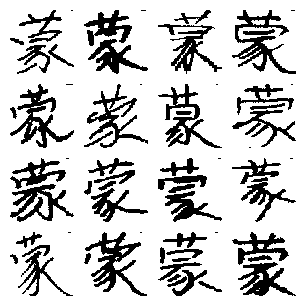 蒙蒙蒙蒙
蒙蒙蒙蒙
蒙蒙蒙蒙
蒙蒙蒙蒙